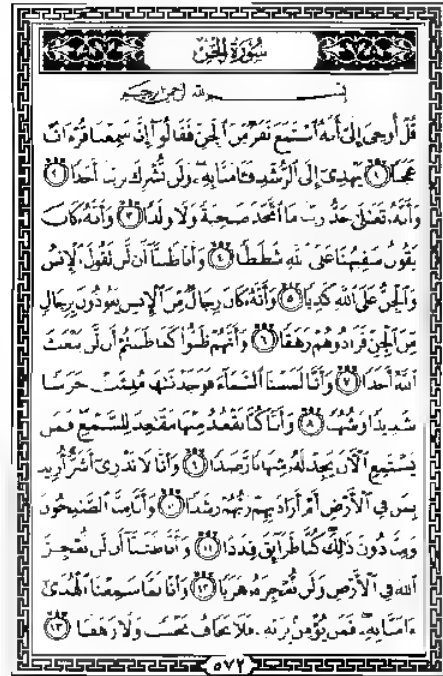 سُورَةُ الجِنّ
بِسْمِ اللَّهِ الرَّحْمَٰنِ الرَّحِيمِ
قُلْ أُوحِىَ إِلَىَّ أَنَّهُ ٱسْتَمَعَ نَفَرٌ مِّنَ ٱلْجِنِّ فَقَالُوٓا۟ إِنَّا سَمِعْنَا قُرْءَانًا
عَجَبًا ١ يَهْدِىٓ إِلَى ٱلرُّشْدِ فَـَٔامَنَّا بِهِۦ وَلَن نُّشْرِكَ بِرَبِّنَآ أَحَدًا ٢
وَأَنَّهُۥ تَعَٰلَىٰ جَدُّ رَبِّنَا مَا ٱتَّخَذَ صَٰحِبَةً وَلَا وَلَدًا ٣ وَأَنَّهُۥ كَانَ
يَقُولُ سَفِيهُنَا عَلَى ٱللَّهِ شَطَطًا ٤ وَأَنَّا ظَنَنَّآ أَن لَّن تَقُولَ ٱلْإِنسُ
وَٱلْجِنُّ عَلَى ٱللَّهِ كَذِبًا ٥ وَأَنَّهُۥ كَانَ رِجَالٌ مِّنَ ٱلْإِنسِ يَعُوذُونَ بِرِجَالٍ
مِّنَ ٱلْجِنِّ فَزَادُوهُمْ رَهَقًا ٦ وَأَنَّهُمْ ظَنُّوا۟ كَمَا ظَنَنتُمْ أَن لَّن يَبْعَثَ
ٱللَّهُ أَحَدًا ٧ وَأَنَّا لَمَسْنَا ٱلسَّمَآءَ فَوَجَدْنَٰهَا مُلِئَتْ حَرَسًا
شَدِيدًا وَشُهُبًا ٨ وَأَنَّا كُنَّا نَقْعُدُ مِنْهَا مَقَٰعِدَ لِلسَّمْعِ فَمَن
يَسْتَمِعِ ٱلْـَٔانَ يَجِدْ لَهُۥ شِهَابًا رَّصَدًا ٩ وَأَنَّا لَا نَدْرِىٓ أَشَرٌّ أُرِيدَ
بِمَن فِى ٱلْأَرْضِ أَمْ أَرَادَ بِهِمْ رَبُّهُمْ رَشَدًا ١٠ وَأَنَّا مِنَّا ٱلصَّٰلِحُونَ
وَمِنَّا دُونَ ذَٰلِكَ كُنَّا طَرَآئِقَ قِدَدًا ١١ وَأَنَّا ظَنَنَّآ أَن لَّن نُّعْجِزَ
ٱللَّهَ فِى ٱلْأَرْضِ وَلَن نُّعْجِزَهُۥ هَرَبًا ١٢ وَأَنَّا لَمَّا سَمِعْنَا ٱلْهُدَىٰٓ
ءَامَنَّا بِهِۦ فَمَن يُؤْمِنۢ بِرَبِّهِۦ فَلَا يَخَافُ بَخْسًا وَلَا رَهَقًا ١٣
٥٧٢